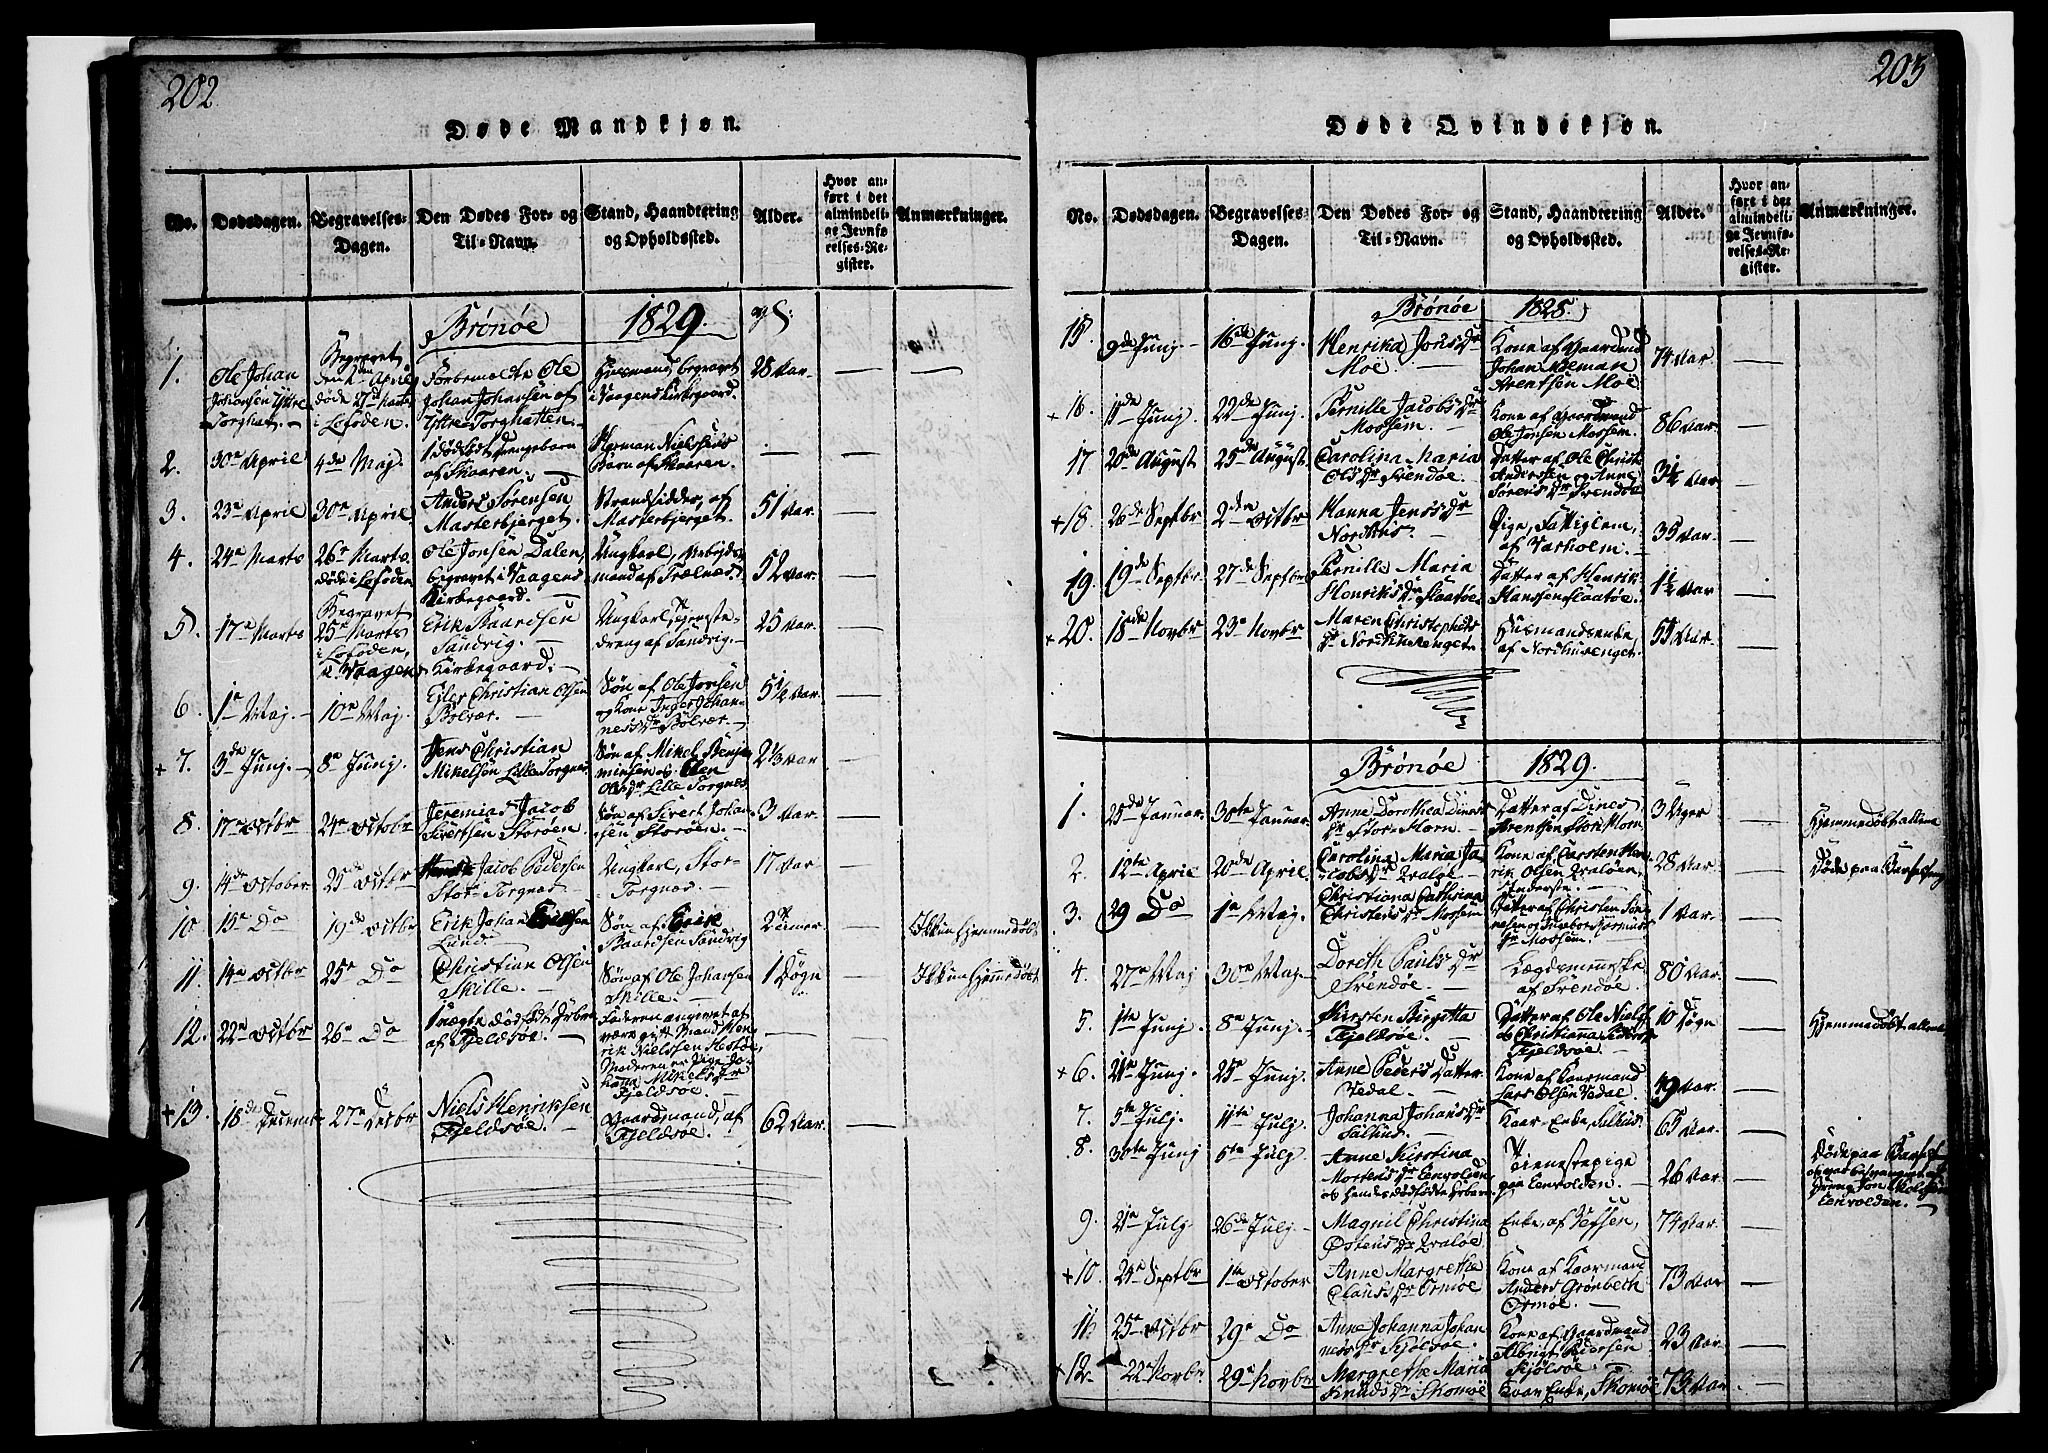 202
Døde Mandkjøn.
No. Dødsdagen. Begravelses-Dagen. Den Dødes For- og Til-Navn. Stand, Haandtering og Opholdssted. Alder. Hvor anført i det almindelige Jevnførelses-Register. Anmærkninger.
Brønøe 1829.
1. Ole Johan Johansen Ystre Torghat. Begravet den April døde 27de Marts i Lofoden. Forbemeldte Ole Johan Johansen af Ystre Torghatten. Huusmand, begravet i Vaagens Kirkegaard. 28 Aar.
2. 30te April 4de Maj. 1 dødfødt Drengebarn af Skaaren. Herman Nielsens Barn af Skaaren.
3. 23de April 30te April Anders Sørensen Masterbjerget. Strandsidder, af Masterbjerget. 51 Aar.
4. 24de Marts 26de Marts døde i Lofoden Ole Jonsen Dalen, begravet i Vaagens Kirkegaard. Ungkarl, Arbejdsmand af Trælnes. 52 Aar.
5. 17de Marts Begravet 25de Marts i Lofoden, Vaagens Kirkegaard. Erik Baardsen Sandvig. Ungkarl, Tjenestedreng af Sandvig. 25 Aar.
6. 1te Maj. 10de Maj. Ejler Christian Olsen Bolvær. Søn af Ole Jonsen og Kone Inger Johannesdr Bolvær. 5½ Aar.
+ 7. 3de Junj. 8de Junj. Jens Christian Mikelsøn Lille Torgnes. Søn af Mikel Benjaminsen og Elen Olsdr Lille Torgnes. 2⅓ Aar
8. 17de Octbr 24de Octobr Jeremias Jacob Sivertsen Storøen. Søn af Sivert Johansen Storøen. 3 Aar.
9. 14de October 25de Octbr Jacob Pedersen Stor-Torgnes. Ungkarl, Stor-Torgnes. 17 Aar
10 15de Do 19de Octbr Erik Johan Eriksen Lund. Søn af Erik Baardsen Sandvig 2 Timer. Ikkun Hjemmedøbt
11. 14de Octbr 25de Do Christian Olsen Skille. Søn af Ole Johansen Skille. 1 Døgn Ikkun Hjemmedøbt
12. 22de Octbr 26de Do 1 uægte dødfødt Drbarn af Fjeldsøe. Faderen angivet at være gift Mand Henrik Nielssen Hestøe, Moderen er Pige Johana Mikelsdr Fjeldsøe.
+13. 18de Decembr 27de Decbr Niels Henriksen Fjeldsøe. Gaardmand, af Fjeldsøe. 62 Aar.
203
Døde Qvindekjøn.
No. Dødsdagen. Begravelses-Dagen. Den Dødes For- og Til-Navn. Stand, Haandtering og Opholdssted. Alder. Hvor anført i det almindelige Jevnførelses-Register. Anmærkninger.
Brønøe 1828.
15. 9de Junj. 16de Junj. Henrika Jonsdr Moe. Kone af Gaardmd Johan Arentsen Moe. 74 Aar.
+ 16. 11de Junj 22de Junj. Pernille Jacobsdr Mossem. Kone af Gaardmand Ole Jonsen Mossem. 86 Aar.
17 20de August 25de August. Carolina Maria Olsdr Svendøe. Datter af Ole Christ. Anderssen og Anne Sørensdr Svendøe. 3½ Aar
+18. 26de Septbr 2den Octbr Hanna Jensdr Nordhus. Pige, Fattiglem, af Varholm. 35 Aar
19. 19de Septbr. 27de Septbr Pernille Maria Henriksdr Flaatøe. Datter af Henrik Hanssen Flaatøe. 1½ Aar
+ 20. 18de Novbr 23de Novbr Maren Christophersdr Nordhusenget. Husmandsenke af Nordhusenget. 55 Aar
Brønøe 1829.
1. 25de Januar. 30te Januar. Anne Dorothea Dinesdr Stor-Horn. Datter af Dines Arentsen Stor Horn 3 Uger Hjemmedøbt allene
2. 12te April 20de April. Carolina Maria Jacobsdr Qvaløe. Kone af Carsten Henrik Olsen Qvaløen, 28 Aar. Døde paa Barselseng
3. 29 Do 1te Maj Christiana Cathrina Christensdr Mossem Datter af Christen Mossem. 1 Aar.
4. 27de Maj 30te Maj. Doreth Paulsdr Svendøe. Lægdsmenneske af Svendøe. 80 Aar.
5. 1te Junj 8de Junj. Kirsten Birgitta Fjeldsøe. Datter af Ole Niels. og Christianna Pedersdr Fjeldsøe. 10 Døgn Hjemmedøbt allene
+ 6. 21de Junj. 25de Junj. Anne Peders Datter Vedal. Kone af Gaarmand Lars Olsen Vedal. 49 Aar.
7. 5te Julj. 11te Julj. Johanna Johansdr Salhus. Kaar-Enke, Salhus. 65 Aar.
8. 30te Junj 6te Julj. Anne Kirstina Mortensdr Eenvolden og hendes dødfødte Drbarn. Tienestepige paa Eenvolden. 26 Aar. Døde paa Barsels. og var besvangret af Dreng Eenvolden.
9. 21de Julj 26de Julj. Magnil Christina Østensdr Qvaløe Enke, af Vefsen, 74 Aar.
+10. 24de Septbr 1te October Anne Margrethe Clausdr Ormøe Kone af Kaarmand Anders Grønbech Ormøe. 73 Aar
11. 25de Octbr 29de Do Anne Johanna Johannesdr Kjølsøe. Kone af Gaardmand Albrigt Pedersen Kjølsøe. 23 Aar
+12. 22de Novbr 29de Novbr Margrethe Maria Knudsdr Skomøe Kaar Enke, Skomøe 73 Aar.